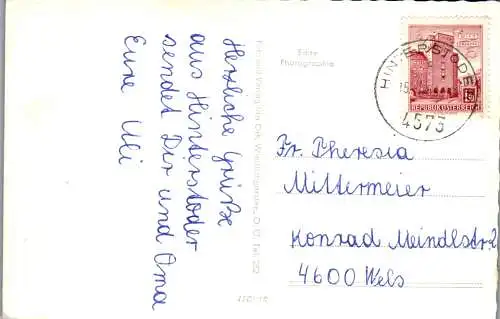 Herzliche Grüße
aus Hinterstoder
sendet Dir und Oma
Eure Uli
Elite
Photographie
REPUBLIK ÖSTERREICH
HINTERSTODER
4573
Fr. Theresia
Mittermeier
Konrad Meindlstr. 2
4600 Wels